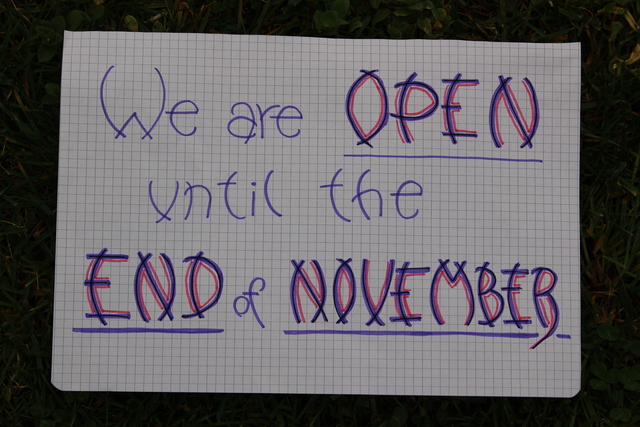 We are OPEN
until the
END of NOVEMBER